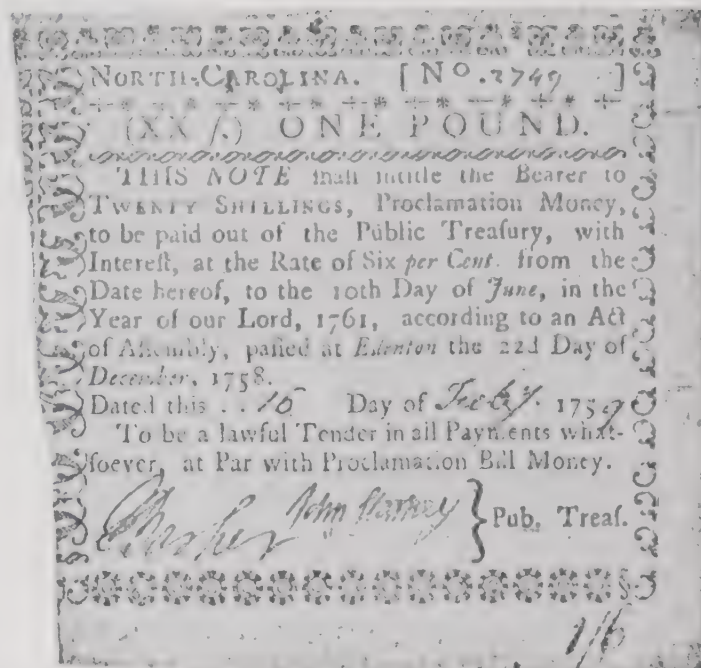 NORTH-CAROLINA. [No. 2749 ]
(XX /.) ONE POUND.
THIS NOTE shall intitle the Bearer to
TWENTY SHILLINGS, Proclamation Money,
to be paid out of the Public Treaſury, with
Intereſt, at the Rate of Six per Cent. from the
Date hereof, to the 10th Day of June, in the
Year of our Lord, 1761, according to an Act
of Aſſembly, paſſed at Edenton the 22d Day of
December, 1758.
Dated this .. 16 Day of Feby. 1759
To be a lawful Tender in all Payments what-
ſoever, at Par with Proclamation Bill Money.
John Starkey } Pub. Treaſ.
1/6